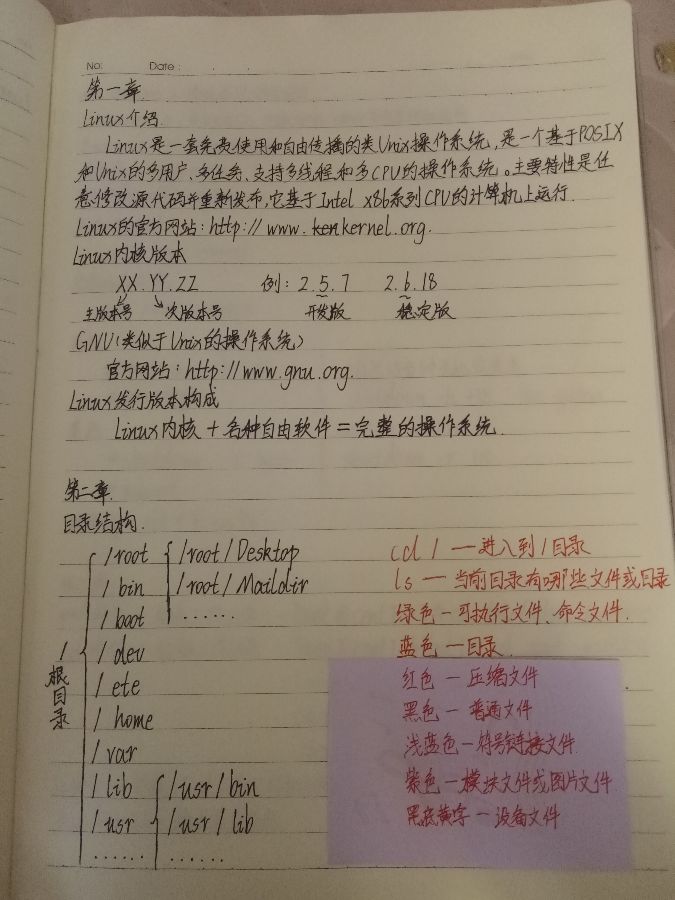 No:    Date:
第一章.
Linux介绍.
Linux是一套免费使用和自由传播的类Unix操作系统,是一个基于POSIX
和Unix的多用户、多任务、支持多线程和多CPU的操作系统。主要特性是任
意修改源代码并重新发布,它基于Intel x86系列CPU的计算机上运行.
Linux的官方网站:http://www.kenkernel.org.
Linux内核版本
XX.YY.ZZ    例: 2.5.7    2.6.18
主版本号    次版本号    开发版    稳定版
GNU(类似于Unix的操作系统)
官方网站:http://www.gnu.org.
Linux发行版本构成
Linux内核 + 各种自由软件 = 完整的操作系统.
第二章.
目录结构.
/根目录
/root    /root/Desktop
/bin    /root/Maildir
/boot    ......
/dev
/ete
/home
/var
/lib    /usr/bin
/usr    /usr/lib
......    ......
cd / —进入到/目录
ls — 当前目录有哪些文件或目录
绿色—可执行文件、命令文件.
蓝色—目录.
红色—压缩文件
黑色—普通文件
浅蓝色—符号链接文件.
紫色—模块文件或图片文件.
黑底黄字—设备文件